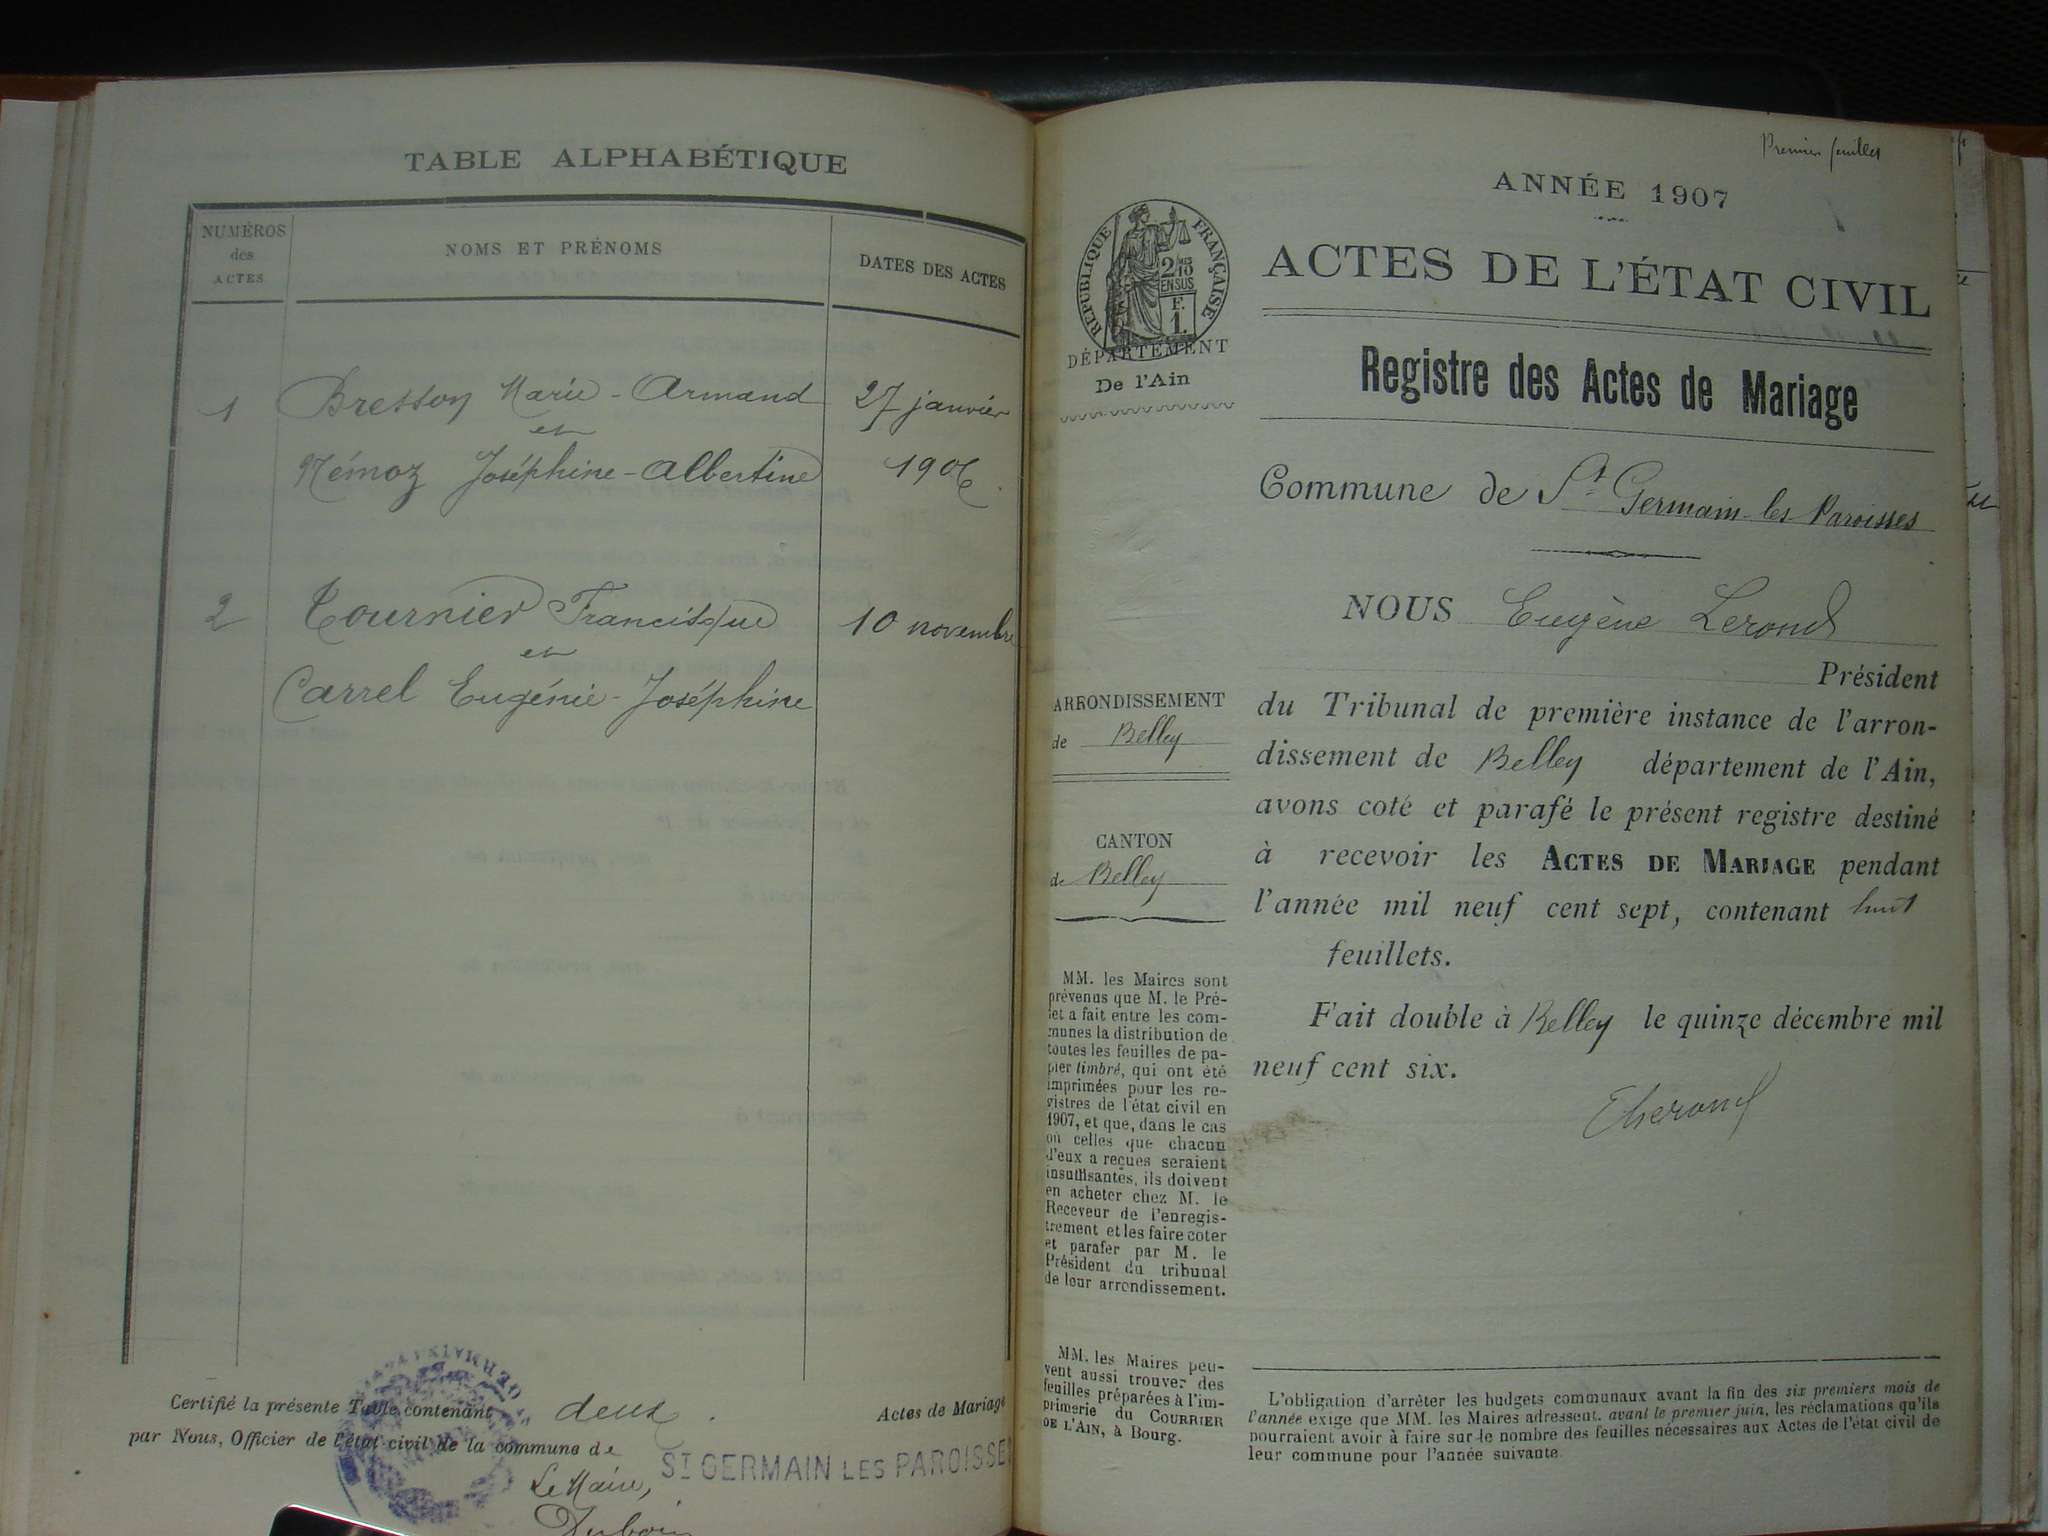 TABLE ALPHABÉTIQUE
NUMÉROS
des
ACTES
NOMS ET PRÉNOMS
DATES DES ACTES
1
Bresson Marie-Armand
27 janvier
et
Némoz Joséphine-Albertine
1906.
2
Tournier Francisque
10 novembre
et
Carrel Eugénie-Joséphine
Certifié la présente Table contenant deux. Actes de Mariage
par Nous, Officier de l'état civil de la commune de
ST GERMAIN LES PAROISSE
Le Maire,
Premier feuillet
ANNÉE 1907
RÉPUBLIQUE FRANÇAISE
2/10
EN SUS
F.
1.
DÉPARTEMENT
De l'Ain
ACTES DE L'ÉTAT CIVIL
Registre des Actes de Mariage
Commune de St Germain-les-Paroisses
NOUS Eugène Lerond
Président
du Tribunal de première instance de l'arron-
dissement de Belley département de l'Ain,
avons coté et parafé le présent registre destiné
à recevoir les ACTES DE MARIAGE pendant
l'année mil neuf cent sept, contenant huit
feuillets.
Fait double à Belley le quinze décembre mil
neuf cent six.
ELerond
ARRONDISSEMENT
de Belley
CANTON
de Belley
MM. les Maires sont
prévenus que M. le Pré-
fet a fait entre les com-
munes la distribution de
toutes les feuilles de pa-
pier timbré, qui ont été
imprimées pour les re-
gistres de l'état civil en
1907, et que, dans le cas
où celles que chacun
d'eux a reçues seraient
insuffisantes, ils doivent
en acheter chez M. le
Receveur de l'enregis-
trement et les faire coter
et parafer par M. le
Président du tribunal
de leur arrondissement.
MM. les Maires peu-
vent aussi trouver des
feuilles préparées à l'im-
primerie du COURRIER
DE L'AIN, à Bourg.
L'obligation d'arrêter les budgets communaux avant la fin des six premiers mois de
l'année exige que MM. les Maires adressent, avant le premier juin, les réclamations qu'ils
pourraient avoir à faire sur le nombre des feuilles nécessaires aux Actes de l'état civil de
leur commune pour l'année suivante.